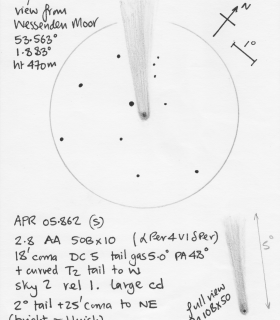 view from
Wessenden Moor
53.563°
1.883°
ht 470m
N
1°
APR 05.862 (S)
2.8 AA 50Bx10 (αPer4V1δPer)
18' coma DC 5 tail gas 5.0° PA 48°
+ curved T2 tail to N
sky 2 rel 1. large cd
2° tail + 25' coma to NE
5°
full view
10Bx50